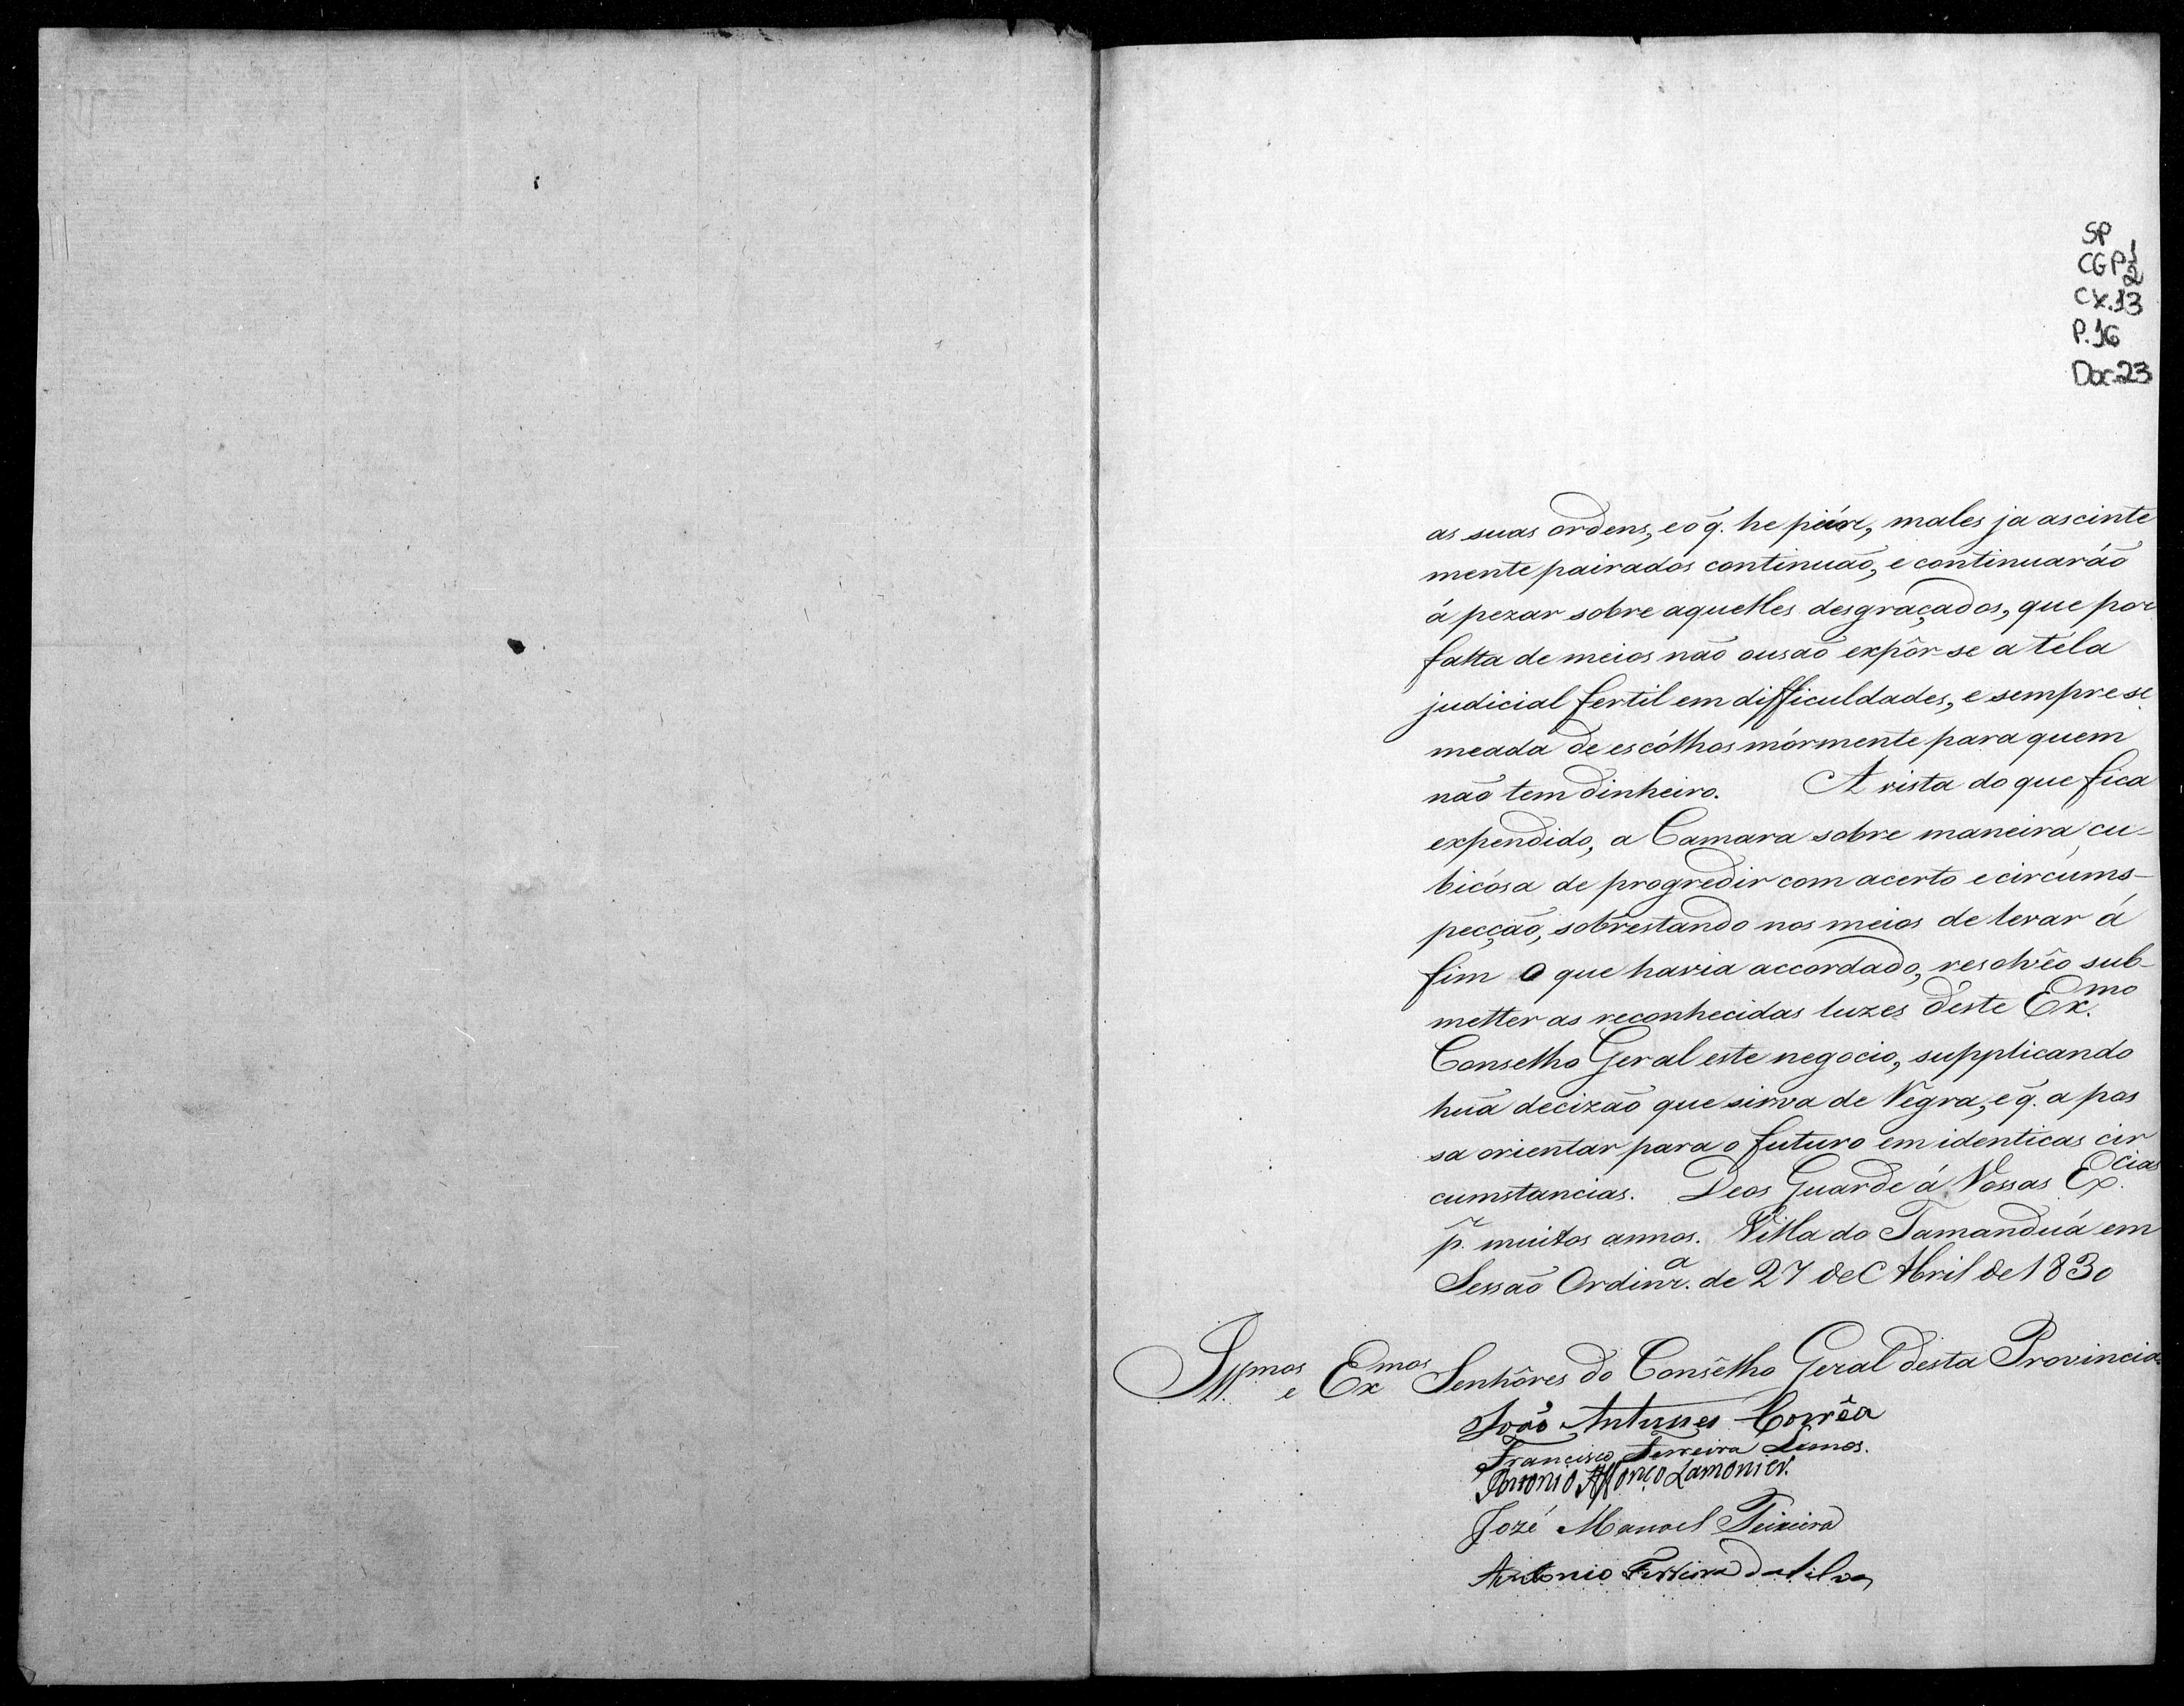 SP
CGP 1/2
Cx.13
P.16
Doc.23
as suas ordens, e o q̃. he piór, males ja ascinte
mente pairados continuaõ, e continuaráõ
á pezar sobre aquelles desgraçados, que por
falta de meios naõ ousaõ expôr-se a téla
judicial fertil em difficuldades, e sempre se
meada de escólhos mórmente para quem
naõ tem dinheiro. A vista do que fica
expendido, a Camara sobre maneira cu-
biçósa de progredir com acerto e circums-
pecçaõ, sobrestando nos meios de levar á
fim o que havia accordado, resolvêo sub-
metter as reconhecidas luzes deste Ex.mo
Conselho Geral este negocio, supplicando
huã decizaõ que sirva de Regra, e q̃. a pos
sa orientar para o futuro em identicas cir
cumstancias. Deos Guarde á Vossas Ex.cias
p.r muitos annos. Villa do Tamanduá em
Sessaõ Ordinr.a de 27 de Abril de 1830
Ill.mos e Ex.mos Senhôres do Consêlho Geral desta Provincia
João Antunes Corrêa
Francisco Ferreira Lemos.
Antonio Affonço Lamonier.
Jozé Manoel Teixeira
Antonio Ferreira da Silva